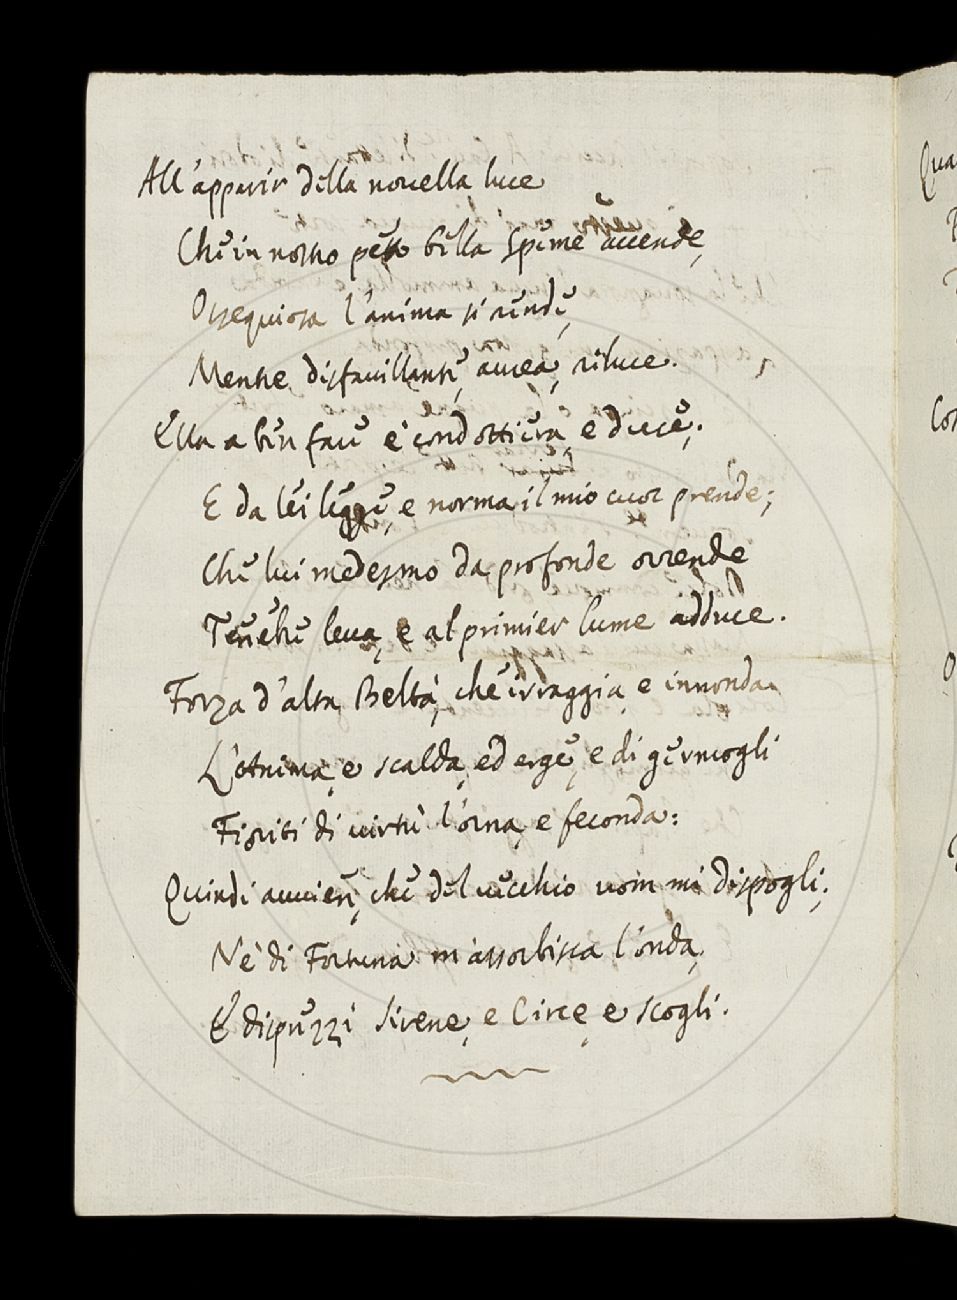 All'apparir della novella luce
Che in nostro petto bella speme accende,
Ossequiosa l'anima si rende,
Mentre disfavillante, aurea, riluce.
Ella a ben fare è condottiera, e duce;
E da lei legge, e norma il mio cuor prende;
Che lui medesmo da profonde orrende
Tenebre leva, e al primier lume adduce.
Forza d'alta Beltà, che irraggia, e innonda
L'Anima, e scalda, ed erge, e di germogli
Fioriti di virtù l'orna, e feconda:
Quindi avvien, che del vecchio uom mi dispogli;
Nè di Fortuna m'assorbisca l'onda,
E disprezzi Sirene, e Circe, e scogli.
Qua
Con